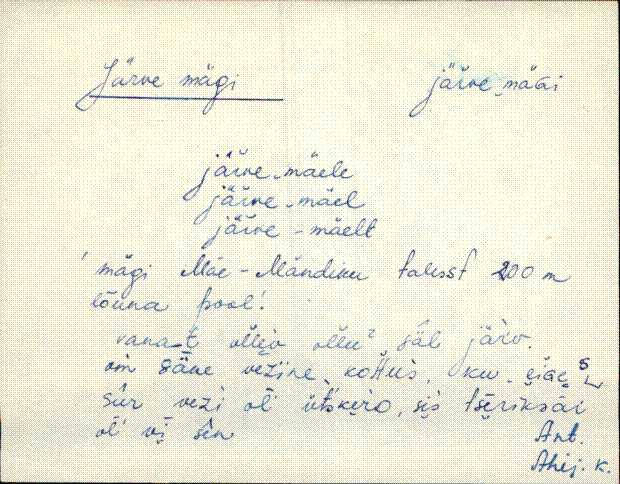 Järve mägi järve mäGi
järve-mäele
järve-mäel
järve-mäelt
'mägi Mäe-Mändiku talust 200 m
lõuna pool'.
vanast olliv ollu' säl järv.
om säne vezine kotus, ku
sūr vezi ol' ütskero, sis
ol' vi sēn
Ant.
Ahij. k.